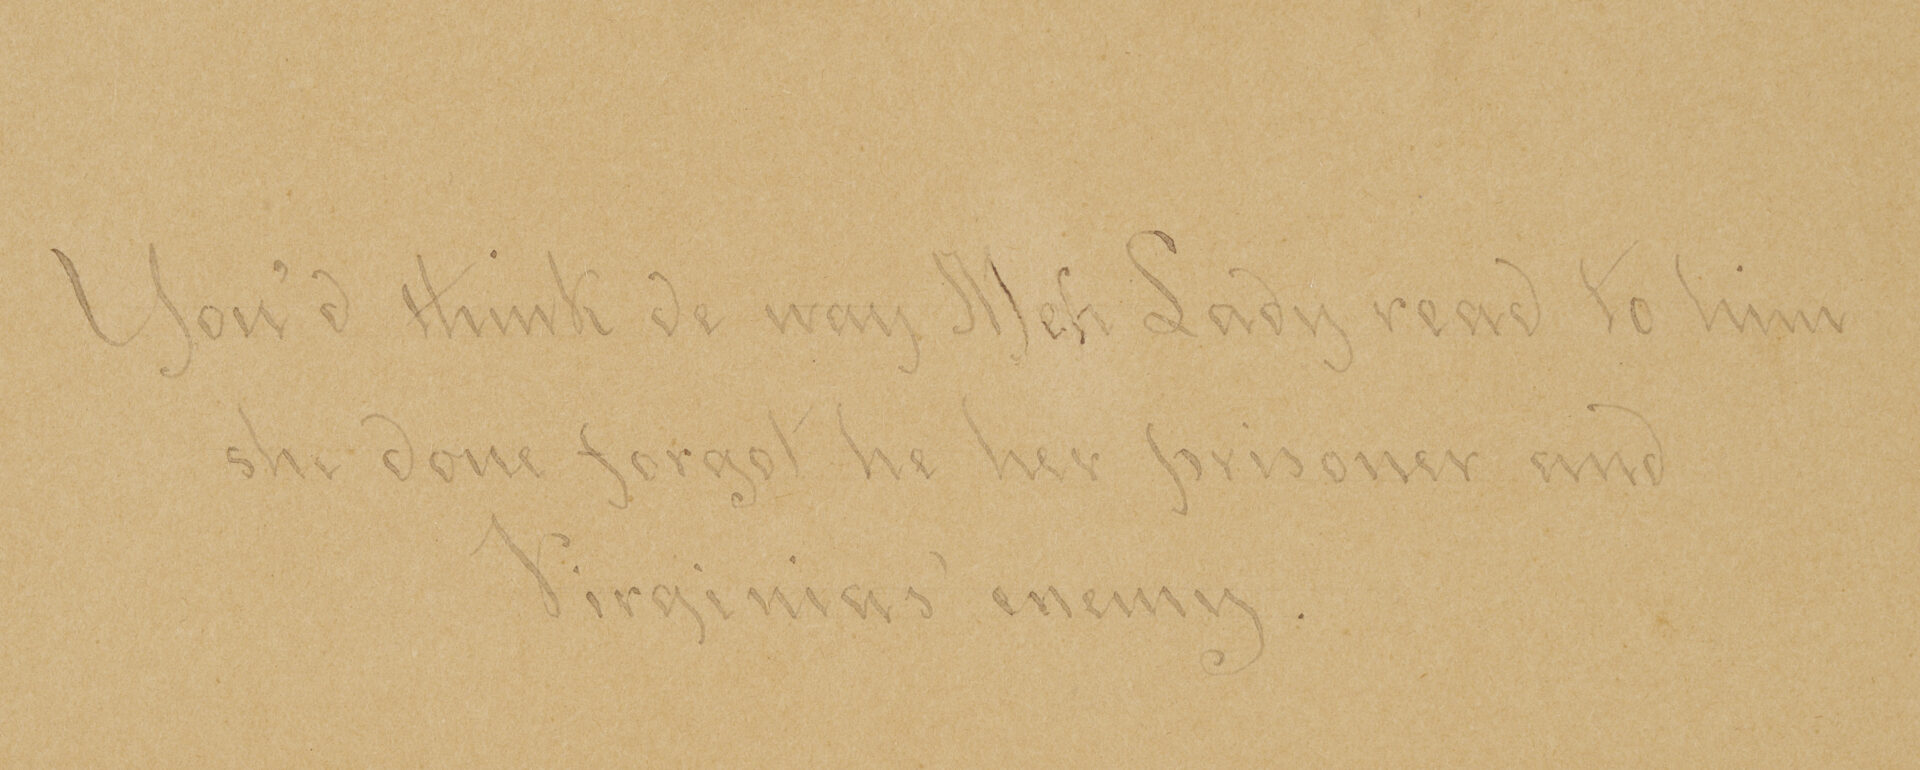 You'd think de way Meh Lady read to him
she done forgot he her prisoner and
Virginias' enemy.